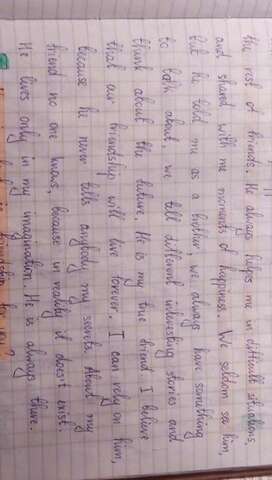 the rest of friends. He always helps me in difficult situations,
and shared with me moments of happines. We seldom see him,
but he told me as a brother, we always have something
to talk about, we tell different interesting stories and
think about the future. He is my true friend I believe
that our friendship will live forever. I can rely on him,
because he never tells anybody my secrets. About my
friend no one knows, because in reality it doesn't exist.
He lives only in my imagination. He is always there.